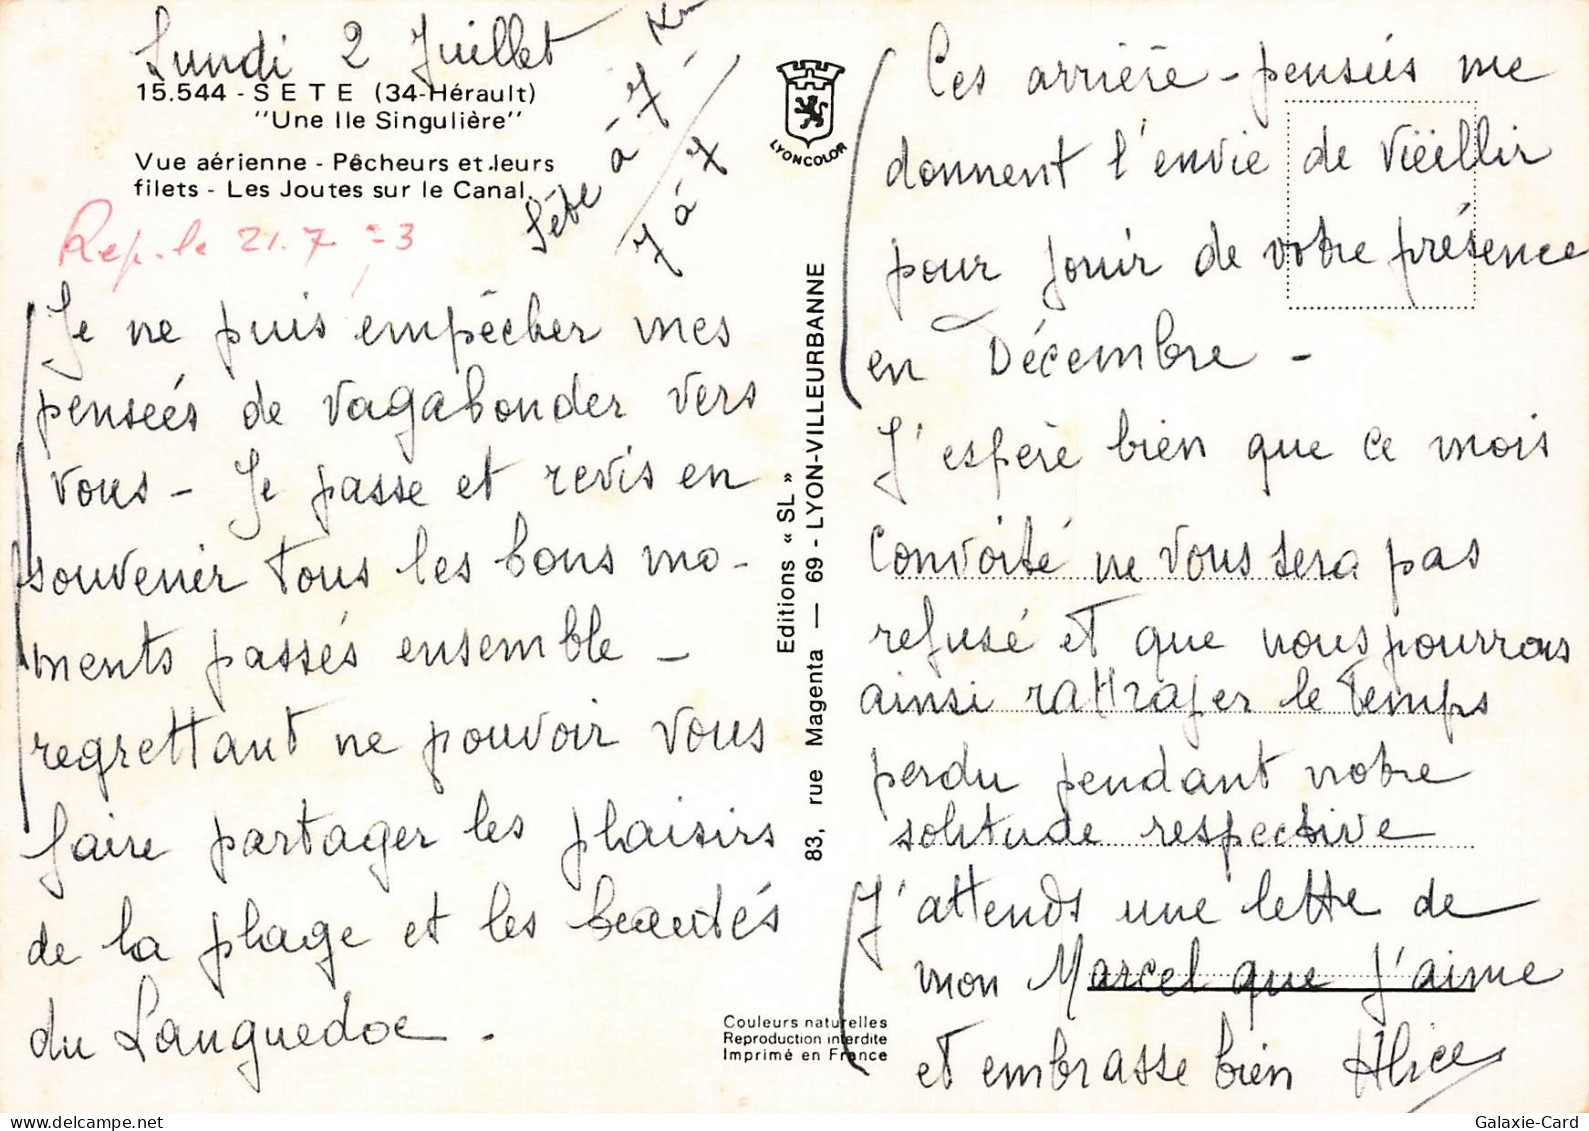 Lundi 2 Juillet
15.544 - SETE (34-Hérault)
"Une Ile Singulière"
Vue aérienne - Pêcheurs et leurs
filets - Les Joutes sur le Canal.
Rep. le 21.7.73
à 7 Km
7 à 7
Je ne puis empêcher mes
penseés de vagabonder vers
vous - Je passe et revis en
souvenir tous les bons mo-
ments passés ensemble -
regrettant ne pouvoir vous
faire partager les plaisirs
de la plage et les beautés
du Languedoc.
LYONCOLOR
Editions « SL »
83, rue Magenta — 69 - LYON-VILLEURBANNE
Couleurs naturelles
Reproduction interdite
Imprimé en France
Ces arrière-pensées me
donnent l'envie de vieillir
pour jouir de votre présence
en Décembre -
J'espère bien que ce mois
convoité ne vous sera pas
refusé et que nous pourrons
ainsi rattraper le temps
perdu pendant notre
solitude respective
J'attends une lettre de
mon Marcel que j'aime
et embrasse bien Alice
Galaxie-Card